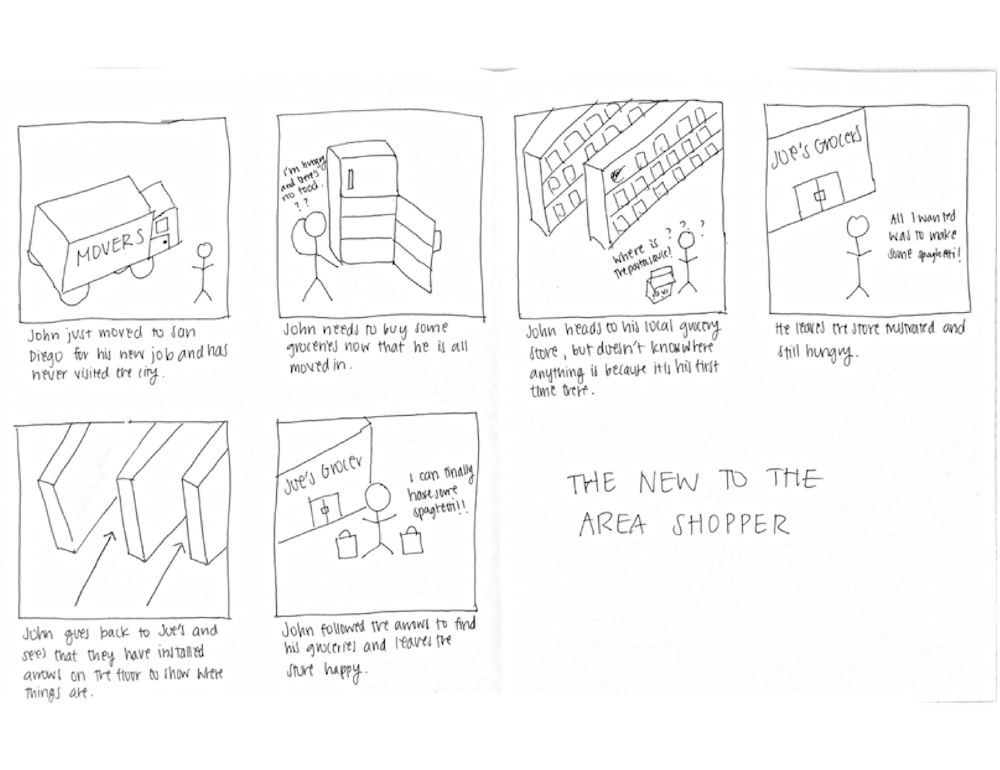 MOVERS
John just moved to San
Diego for his new job and has
never visited the city.
I'm hungry
and there's
no food.
? ?
John needs to buy some
groceries now that he is all
moved in.
? ? ?
Where is
the pasta sauce!
John heads to his local grocery
store, but doesn't know where
anything is because it is his first
time there.
JOE'S GROCERS
All I wanted
was to make
some spaghetti!
He leaves the store frustrated and
still hungry.
John goes back to Joe's and
sees that they have installed
arrows on the floor to show where
things are.
JOE'S GROCER
I can finally
have some
spaghetti!!
John followed the arrows to find
his groceries and leaves the
store happy.
THE NEW TO THE
AREA SHOPPER